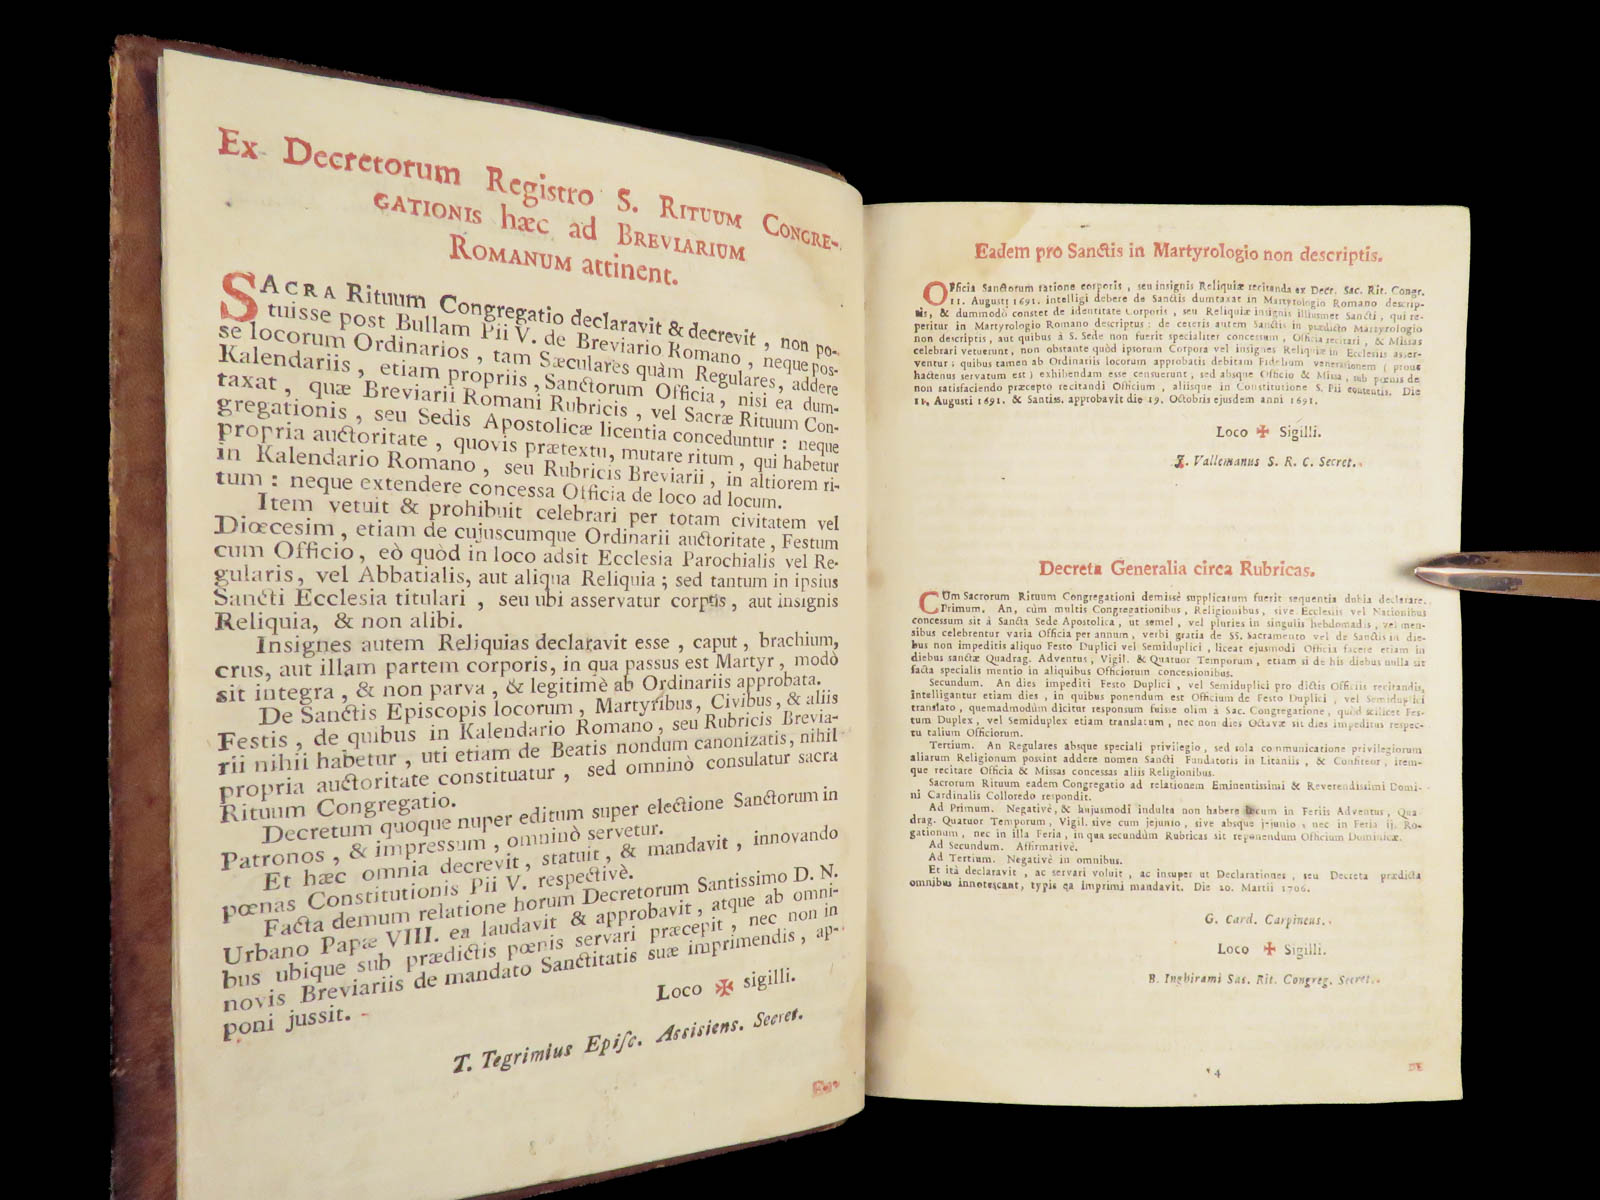 Ex Decretorum Registro S. RITUUM CONGRE-
GATIONIS hæc ad BREVIARIUM
ROMANUM attinent.
SACRA Rituum Congregatio declaravit & decrevit, non po-
tuisse post Bullam Pii V. de Breviario Romano, neque pos-
se locorum Ordinarios, tam Sæculares quàm Regulares, addere
Kalendariis, etiam propriis, Sanctorum Officia, nisi ea dum-
taxat, quæ Breviarii Romani Rubricis, vel Sacræ Rituum Con-
gregationis, seu Sedis Apostolicæ licentia conceduntur: neque
propria auctoritate, quovis prætextu, mutare ritum, qui habetur
in Kalendario Romano, seu Rubricis Breviarii, in altiorem ri-
tum: neque extendere concessa Officia de loco ad locum.
Item vetuit & prohibuit celebrari per totam civitatem vel
Diœcesim, etiam de cujuscumque Ordinarii auctoritate, Festum
cum Officio, eò quòd in loco adsit Ecclesia Parochialis vel Re-
gularis, vel Abbatialis, aut aliqua Reliquia; sed tantum in ipsius
Sancti Ecclesia titulari, seu ubi asservatur corpus, aut insignis
Reliquia, & non alibi.
Insignes autem Reliquias declaravit esse, caput, brachium,
crus, aut illam partem corporis, in qua passus est Martyr, modò
sit integra, & non parva, & legitimè ab Ordinariis approbata.
De Sanctis Episcopis locorum, Martyribus, Civibus, & aliis
Festis, de quibus in Kalendario Romano, seu Rubricis Brevia-
rii nihil habetur, uti etiam de Beatis nondum canonizatis, nihil
propria auctoritate constituatur, sed omninò consulatur sacra
Rituum Congregatio.
Decretum quoque nuper editum super electione Sanctorum in
Patronos, & impressum, omninò servetur.
Et hæc omnia decrevit, statuit, & mandavit, innovando
pœnas Constitutionis Pii V. respectivè.
Facta demum relatione horum Decretorum Santissimo D. N.
Urbano Papæ VIII. ea laudavit & approbavit, atque ab omni-
bus ubique sub prædictis pœnis servari præcepit, nec non in
novis Breviariis de mandato Sanctitatis suæ imprimendis, ap-
poni jussit.
Loco ✠ sigilli.
T. Tegrimius Episc. Assisiens. Secret.
Eadem pro Sanctis in Martyrologio non descriptis.
Officia Sanctorum ratione corporis, seu insignis Reliquiæ recitanda ex Decr. Sac. Rit. Congr.
11. Augusti 1691. intelligi debere de Sanctis dumtaxat in Martyrologio Romano descrip-
tis, & dummodò constet de identitate Corporis, seu Reliquiæ insignis illiusmet Sancti, qui re-
peritur in Martyrologio Romano descriptus: de ceteris autem Sanctis in prædicto Martyrologio
non descriptis, aut quibus à S. Sede non fuerit specialiter concessum, Officia recitari, & Missas
celebrari vetuerunt, non obstante quòd ipsorum Corpora vel insignes Reliquiæ in Ecclesiis asser-
ventur: quibus tamen ab Ordinariis locorum approbatis debitam Fidelium venerationem (prout
hactenus servatum est) exhibendam esse censuerunt, sed absque Officio & Missa, sub pœnis de
non satisfaciendo præcepto recitandi Officium, aliisque in Constitutione S. Pii contentis. Die
11. Augusti 1691. & Santiss. approbavit die 19. Octobris ejusdem anni 1691.
Loco ✠ Sigilli.
Vallemanus S. R. C. Secret.
Decreta Generalia circa Rubricas.
CUm Sacrorum Rituum Congregationi demissè supplicatum fuerit sequentia dubia declarare.
Primum. An, cùm multis Congregationibus, Religionibus, sive Ecclesiis vel Nationibus
concessum sit à Sancta Sede Apostolica, ut semel, vel pluries in singulis hebdomadis, vel men-
sibus celebrentur varia Officia per annum, verbi gratia de SS. Sacramento vel de Sanctis in die-
bus non impeditis aliquo Festo Duplici vel Semiduplici, liceat ejusmodi Officia facere etiam in
diebus sanctæ Quadrag. Adventus, Vigil. & Quatuor Temporum, etiam si de his diebus nulla sit
facta specialis mentio in aliquibus Officiorum concesionibus.
Secundum. An dies impediti Festo Duplici, vel Semiduplici pro dictis Officiis recitandis,
intelligantur etiam dies, in quibus ponendum est Officium de Festo Duplici, vel Semiduplici
translato, quemadmodùm dicitur responsum fuisse olim à Sac. Congregatione, quòd scilicet Fes-
tum Duplex, vel Semiduplex etiam translatum, nec non dies Octavæ sit dies impeditus respec-
tu talium Officiorum.
Tertium. An Regulares absque speciali privilegio, sed sola communicatione privilegiorum
aliarum Religionum possint addere nomen Sancti Fundatoris in Litaniis, & Confiteor, item-
que recitare Officia & Missas concessas aliis Religionibus.
Sacrorum Rituum eadem Congregatio ad relationem Eminentissimi & Reverendissimi Domi-
ni Cardinalis Colloredo respondit.
Ad Primum. Negativè, & hujusmodi indulta non habere locum in Feriis Adventus, Qua-
drag. Quatuor Temporum, Vigil. sive cum jejunio, sive absque jejunio, nec in Feria ij. Ro-
gationum, nec in illa Feria, in qua secundùm Rubricas sit reponendum Officium Dominicæ.
Ad Secundum. Affirmativè.
Ad Tertium. Negativè in omnibus.
Et ità declaravit, ac servari voluit, ac insuper ut Declarationes, seu Decreta prædicta
omnibus innotescant, typis ea imprimi mandavit. Die 20. Martii 1706.
G. Card. Carpineus.
Loco ✠ Sigilli.
B. Inghirami Sac. Rit. Congreg. Secret.
4
DE